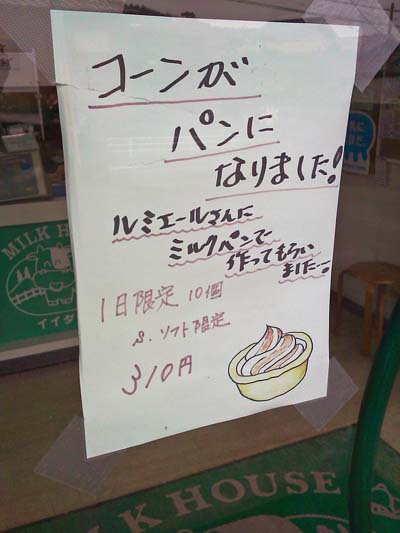 コーンが
パンに
なりました!
ルミエールさんに
ミルクパンで
作ってもらい
ました!
1日限定 10個
S.ソフト限定
310円
MILK HOUSE
MILK HOUSE